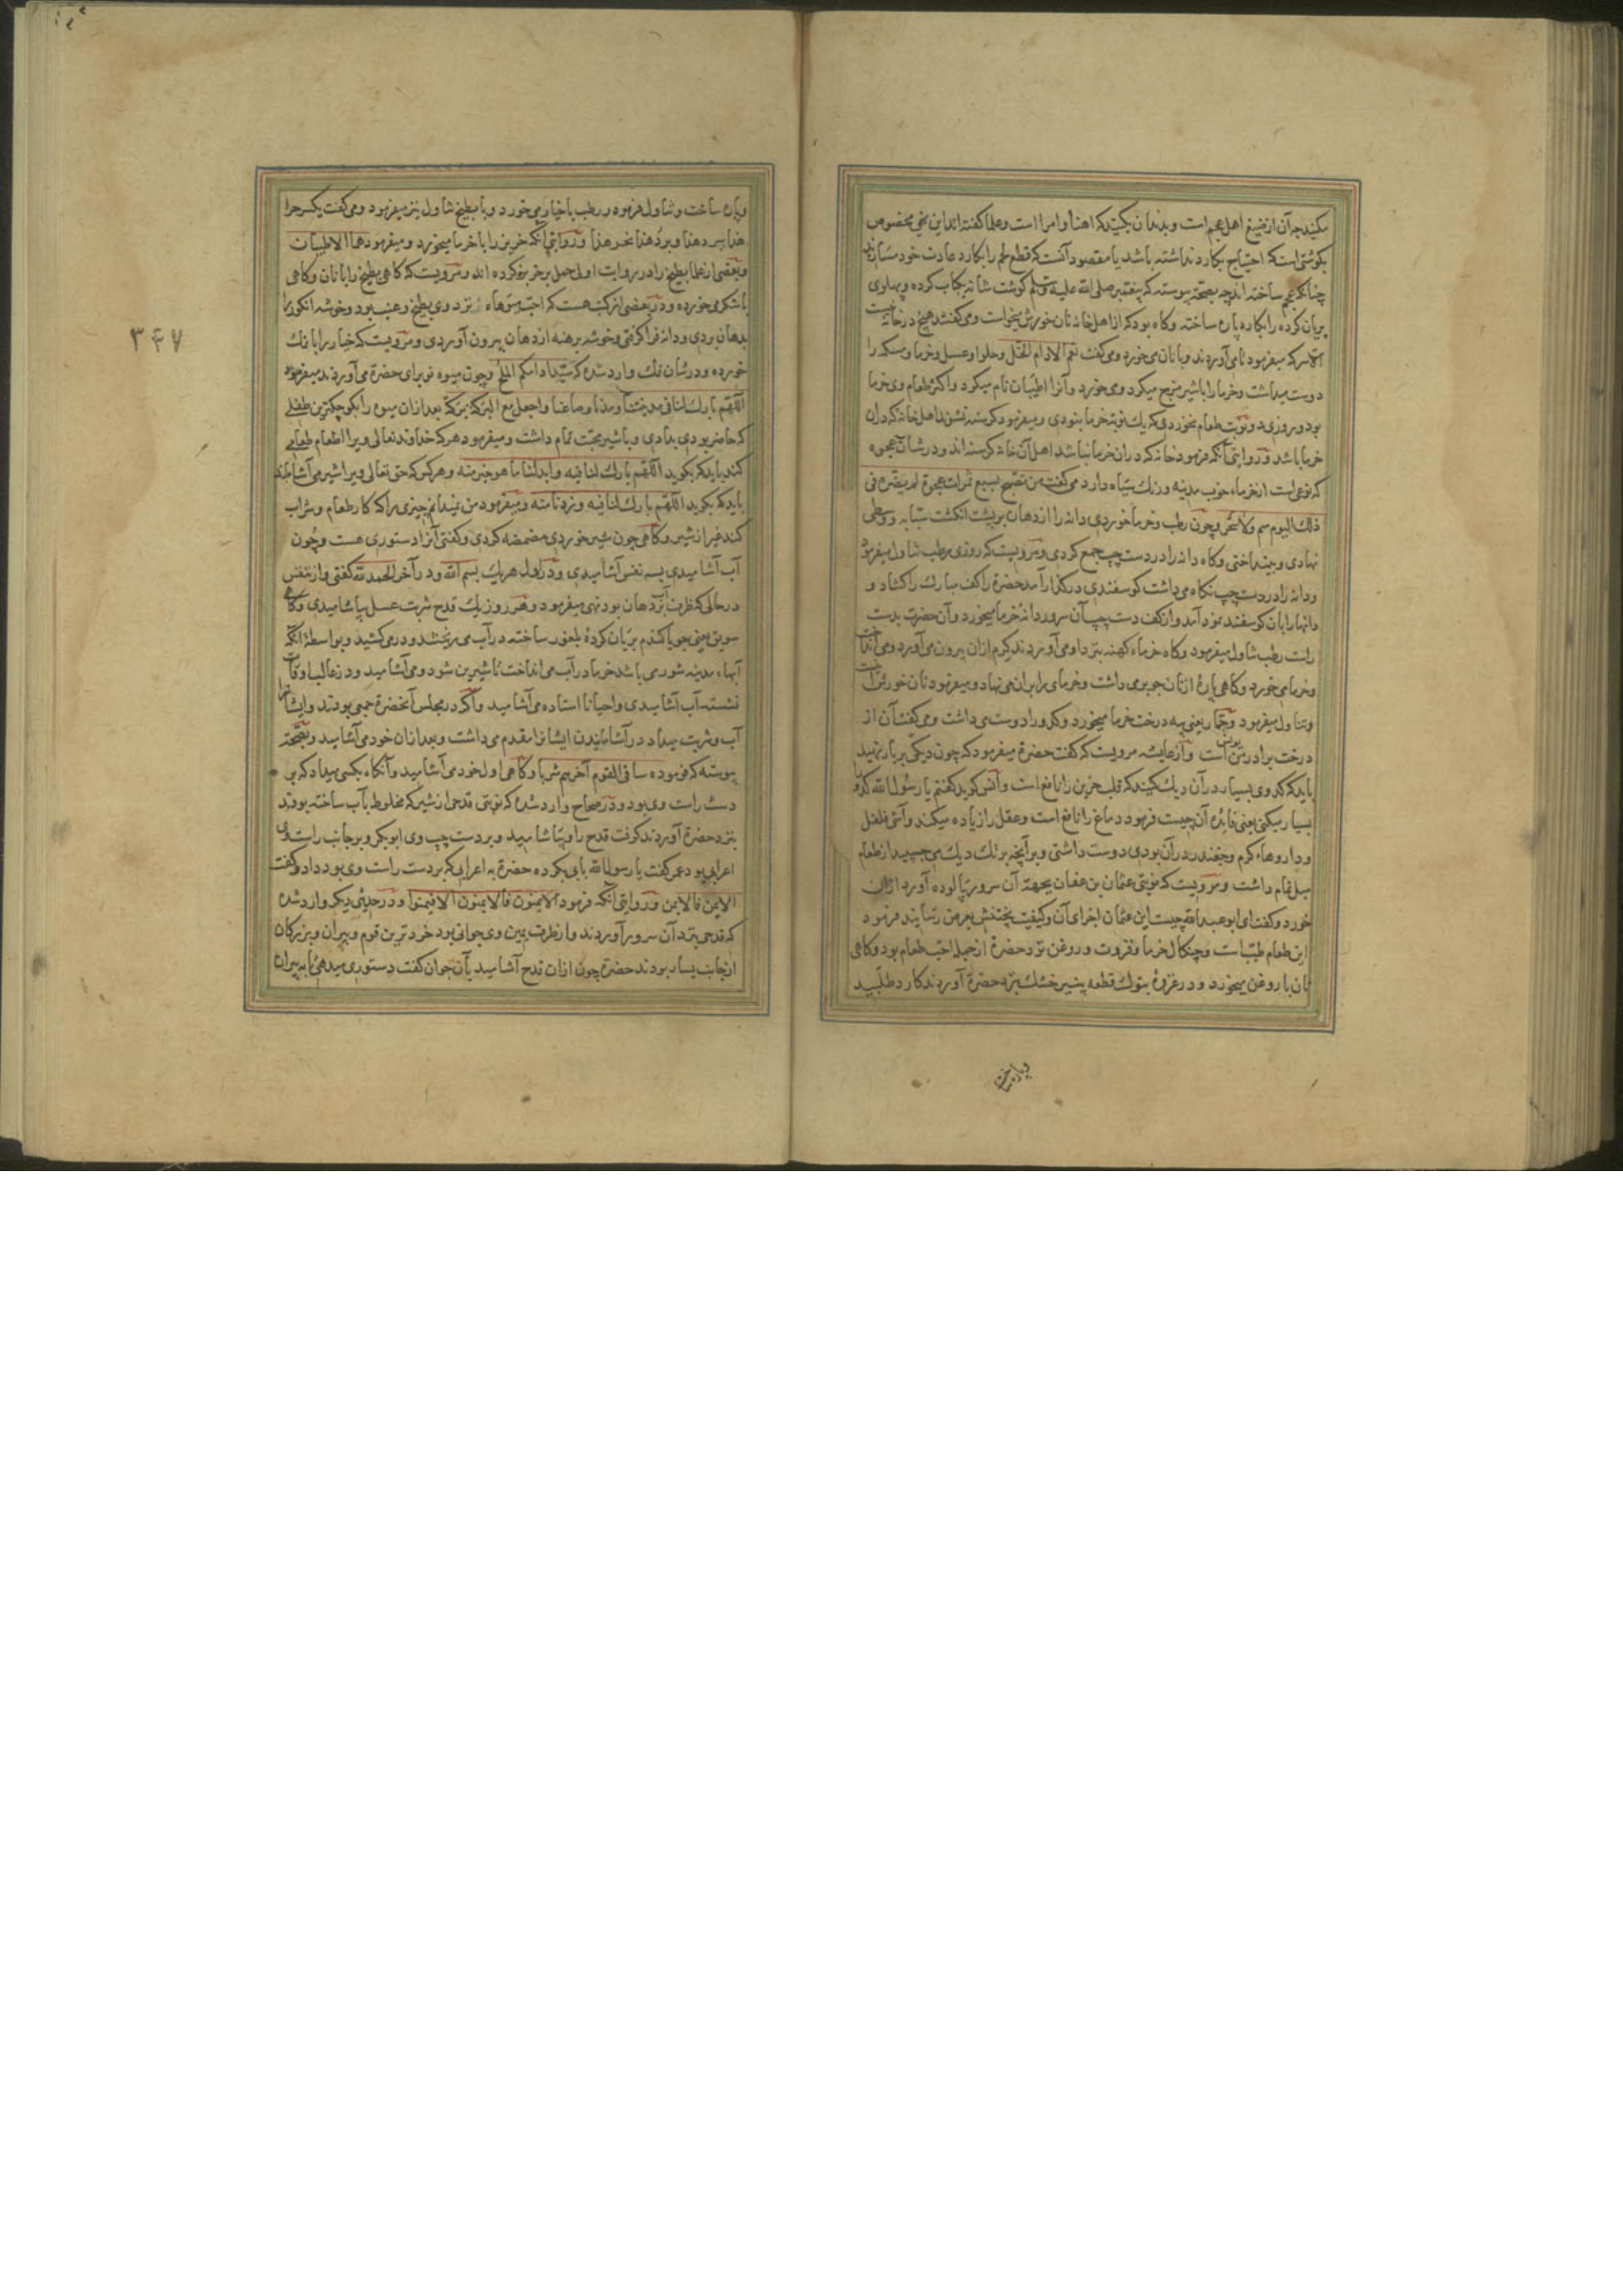 مکنید چه آن از صنیع اهل عجم است و بدندان بگیرید که اهنأ و امرأ است و علما گفته‌اند این نهی مخصوص
بگوشتی است که احتیاج بکارد نداشته باشد یا مقصود آنست که قطع لحم را بکارد عادت خود مسازید
چنانکه عجم ساخته اند چه بصحّت پیوسته که پیغمبر صلی الله علیه وسلم گوشت شانه بکباب کرده و پهلوی
بریان کرده را بکارد پاره ساخته و گاه بود که از اهل خانه نان خورش میخواست و می‌گفتند هیچ در خانه نیست
الا سرکه میفرمود تا می‌آوردند و با نان می‌خورد و می‌گفت نعم الادام الخل و حلوا و عسل و خرما و مسکه را
دوست میداشت و خرما را با شیر مزج میکرد و می‌خورد و آنرا اطیبان نام میکرد و اکثر طعام وی خرما
بود و روزی دو نوبت طعام نخوردی که یک نوبت خرما نبودی و میفرمود گرسنه نشوند اهل خانه که در آن
خرما باشد و در روایتی آنکه فرمود خانه که در ان خرما نباشد اهل آن خانه گرسنه اند و در شان عجوه
که نوعی است از خرماء خوب مدینه و رنگ سیاه دارد می‌گفت من تصبح بسبع تمرات عجوة لم یضره فی
ذلک الیوم سم ولا سحر و چون رطب و خرما خوردی دانه را از دهان بر پشت انگشت سبابه و وسطی
نهادی و بینداختی و گاه دانه را در دست چپ جمع کردی و مرویست که روزی رطب تناول میفرمود
و دانه را در دست چپ نگاه می‌داشت گوسفندی در گذار آمد حضرة کف مبارک را گشاد و
دانها را بان گوسفند نمود آمد و از کف دست چپ آن سرور دانهٔ خرما میخورد و آن حضرت بدست
راست رطب تناول میفرمود و گاه خرماء کهنه بنزد او می‌آوردند کرم ازان بیرون می‌آورد و می‌انداخت
و خرما می‌خورد و گاهی پارهٔ از نان جو برمی داشت و خرمای را بر ان می‌نهاد و میفرمود نان خورش اینست
و تناول میفرمود و جمار یعنی پیه درخت خرما میخورد و کدو را دوست می داشت و می‌گفت آن از
درخت برادر من یونس است و از عایشه مرویست که گفت حضرة میفرمود که چون دیگی بر بار نهید
باید که کدوی بسیار در آن دیگ کنید که قلب حزین را نافع است و انس گوید گفتم یا رسول الله کدو
بسیار میکنی یعنی فایدهٔ آن چیست فرمود دماغ را نافع است و عقل را زیاده میکند و آشی فلفل
و داروهاء گرم و چغندر در آن بودی دوست داشتی و بر آنچه بر تک دیگ می‌چسپید از طعام
میل تمام داشت و مرویست که نوبتی عثمان بن عفان بجهت آن سرور پالوده آورد ازان
خورد و گفت ای ابو عبد الله چیست این عثمان اجزای آن و کیفیت پختنش بعرض رسانید فرمود
این طعام طیب است و چنگال خرما و قروت و روغن نزد حضرة از جمله احب طعام بود و گاهی
نان با روغن میخورد و در غزوهٔ تبوک قطعه پنیر خشک بنزد حضرة آوردند کارد طلبید
و پاره ساخت
و پاره ساخت و تناول فرمود و رطب با خیار می‌خورد و با بطیخ تناول نیز میفرمود و می‌گفت یکسر حر
هذا ببرد هذا و برد هذا بحر هذا و در روایتی آنکه خربز را با خرما میخورد و میفرمود هما الاطیبان
و بعضی از علما بطیخ را در روایت اول حمل بر خربزه کرده اند و مرویست که گاهی بطیخ را با نان و گاهی
با شکر می‌خورده و در بعضی از کتب هست که احب میوهاء نزد وی بطیخ و عنب بود و خوشه انگور را
بدهان بردی و دانه فرا گرفتی و خوشه برهنه از دهان بیرون آوردی و مرویست که خیار را با نمک
خورده و در شان نمک وارد شده که سید ادامکم الملح و چون میوه نو برای حضرة می‌آوردند میفرمود
اللهم بارک لنا فی مدینتنا و مدنا و صاعنا و اجعل مع البرکة برکة بعد ازان میوه را بکوچکترین طفلی
که حاضر بودی بدادی و با شیر محبت تمام داشت و میفرمود هرکه خداوند تعالی ویرا اطعام طعامی
کند باید که بگوید اللهم بارک لنا فیه و ابدلنا ما هو خیر منه و هر کس که حق تعالی ویرا شیر می‌آشاماند
باید که بگوید اللهم بارک لنا فیه و زدنا منه و میفرمود من نمیدانم چیزی را که کار طعام و شراب
کند غیر از شیر و گاهی چون شیر خوردی مضمضه کردی و گفتی آنرا دستوری هست و چون
آب آشامیدی بسه نفس آشامیدی و در اول هریک بسم الله و در آخر الحمد لله گفتی و از تنفس
در حالی که ظرف آب نزد دهان بود نهی میفرمود و هر روز یک قدح شربت عسل بیاشامیدی و گاه
سویق یعنی جو یا گندم بریان کردهٔ بلغور ساخته در آب می‌ریختند و در می‌کشید و بواسطهٔ آنکه
آبهاء مدینه شور می باشد خرما در آب می‌انداخت تا شیرین شود و می‌آشامید و در غالب اوقات
نشسته آب آشامیدی و احیانا استاده می‌آشامید و اگر در مجلس آنحضرة جمعی بودند و ایشانرا
آب و شربت میداد در آشامانیدن ایشانرا مقدم می‌داشت و بعد ازان خود می‌آشامید و بصحّت
پیوسته که فرموده ساقی القوم آخرهم شربا و گاهی اول خود می‌آشامید و آنگاه بکسی میداد که بر
دست راست وی بود و در صحاح وارد شده که نوبتی قدحی از شیر که مخلوط بآب ساخته بودند
بنزد حضرة آوردند گرفت قدح را و بیاشامید و بر دست چپ وی ابو بکر و بر جانب راست وی
اعرابی بود عمر گفت یا رسول الله بابی بکر ده حضرة به اعرابی که بر دست راست وی بود داد و گفت
الایمن فالایمن و در روایتی آنکه فرمود الایمنون فالایمنون الا فیمنوا و در حدیثی دیگر وارد شده
که قدحی بنزد آن سرور آوردند و از طرف یمین وی جوانی بود خردترین قوم و پیران و بزرگان
از جانب یسار بودند حضرة چون ازان قدح آشامید بآن جوان گفت دستوری میدهی تا به پیران
۳۴۷